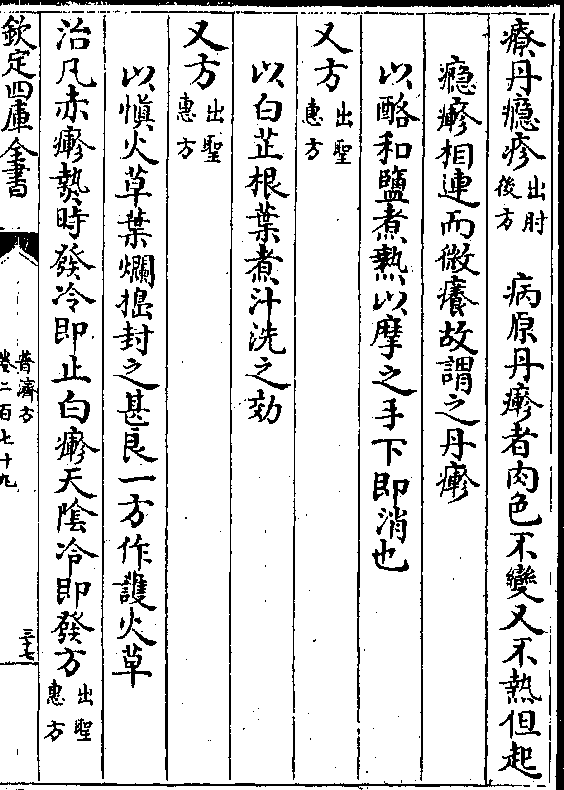 療丹癮疹出肘後方　病原丹𤺋者肉色不變又不熱但起
癮𤺋相連而微癢故謂之丹𤺋
以酪和鹽煮熟以摩之手下即消也
又方出聖惠方
以白芷根葉煮汁洗之効
又方出聖惠方
以慎火草葉爛搗封之甚良一方作護火草
治凡赤𤺋熱時發冷即止白𤺋天陰冷即發方出聖惠方
欽定四庫全書
普濟方
卷二百七十九
三七